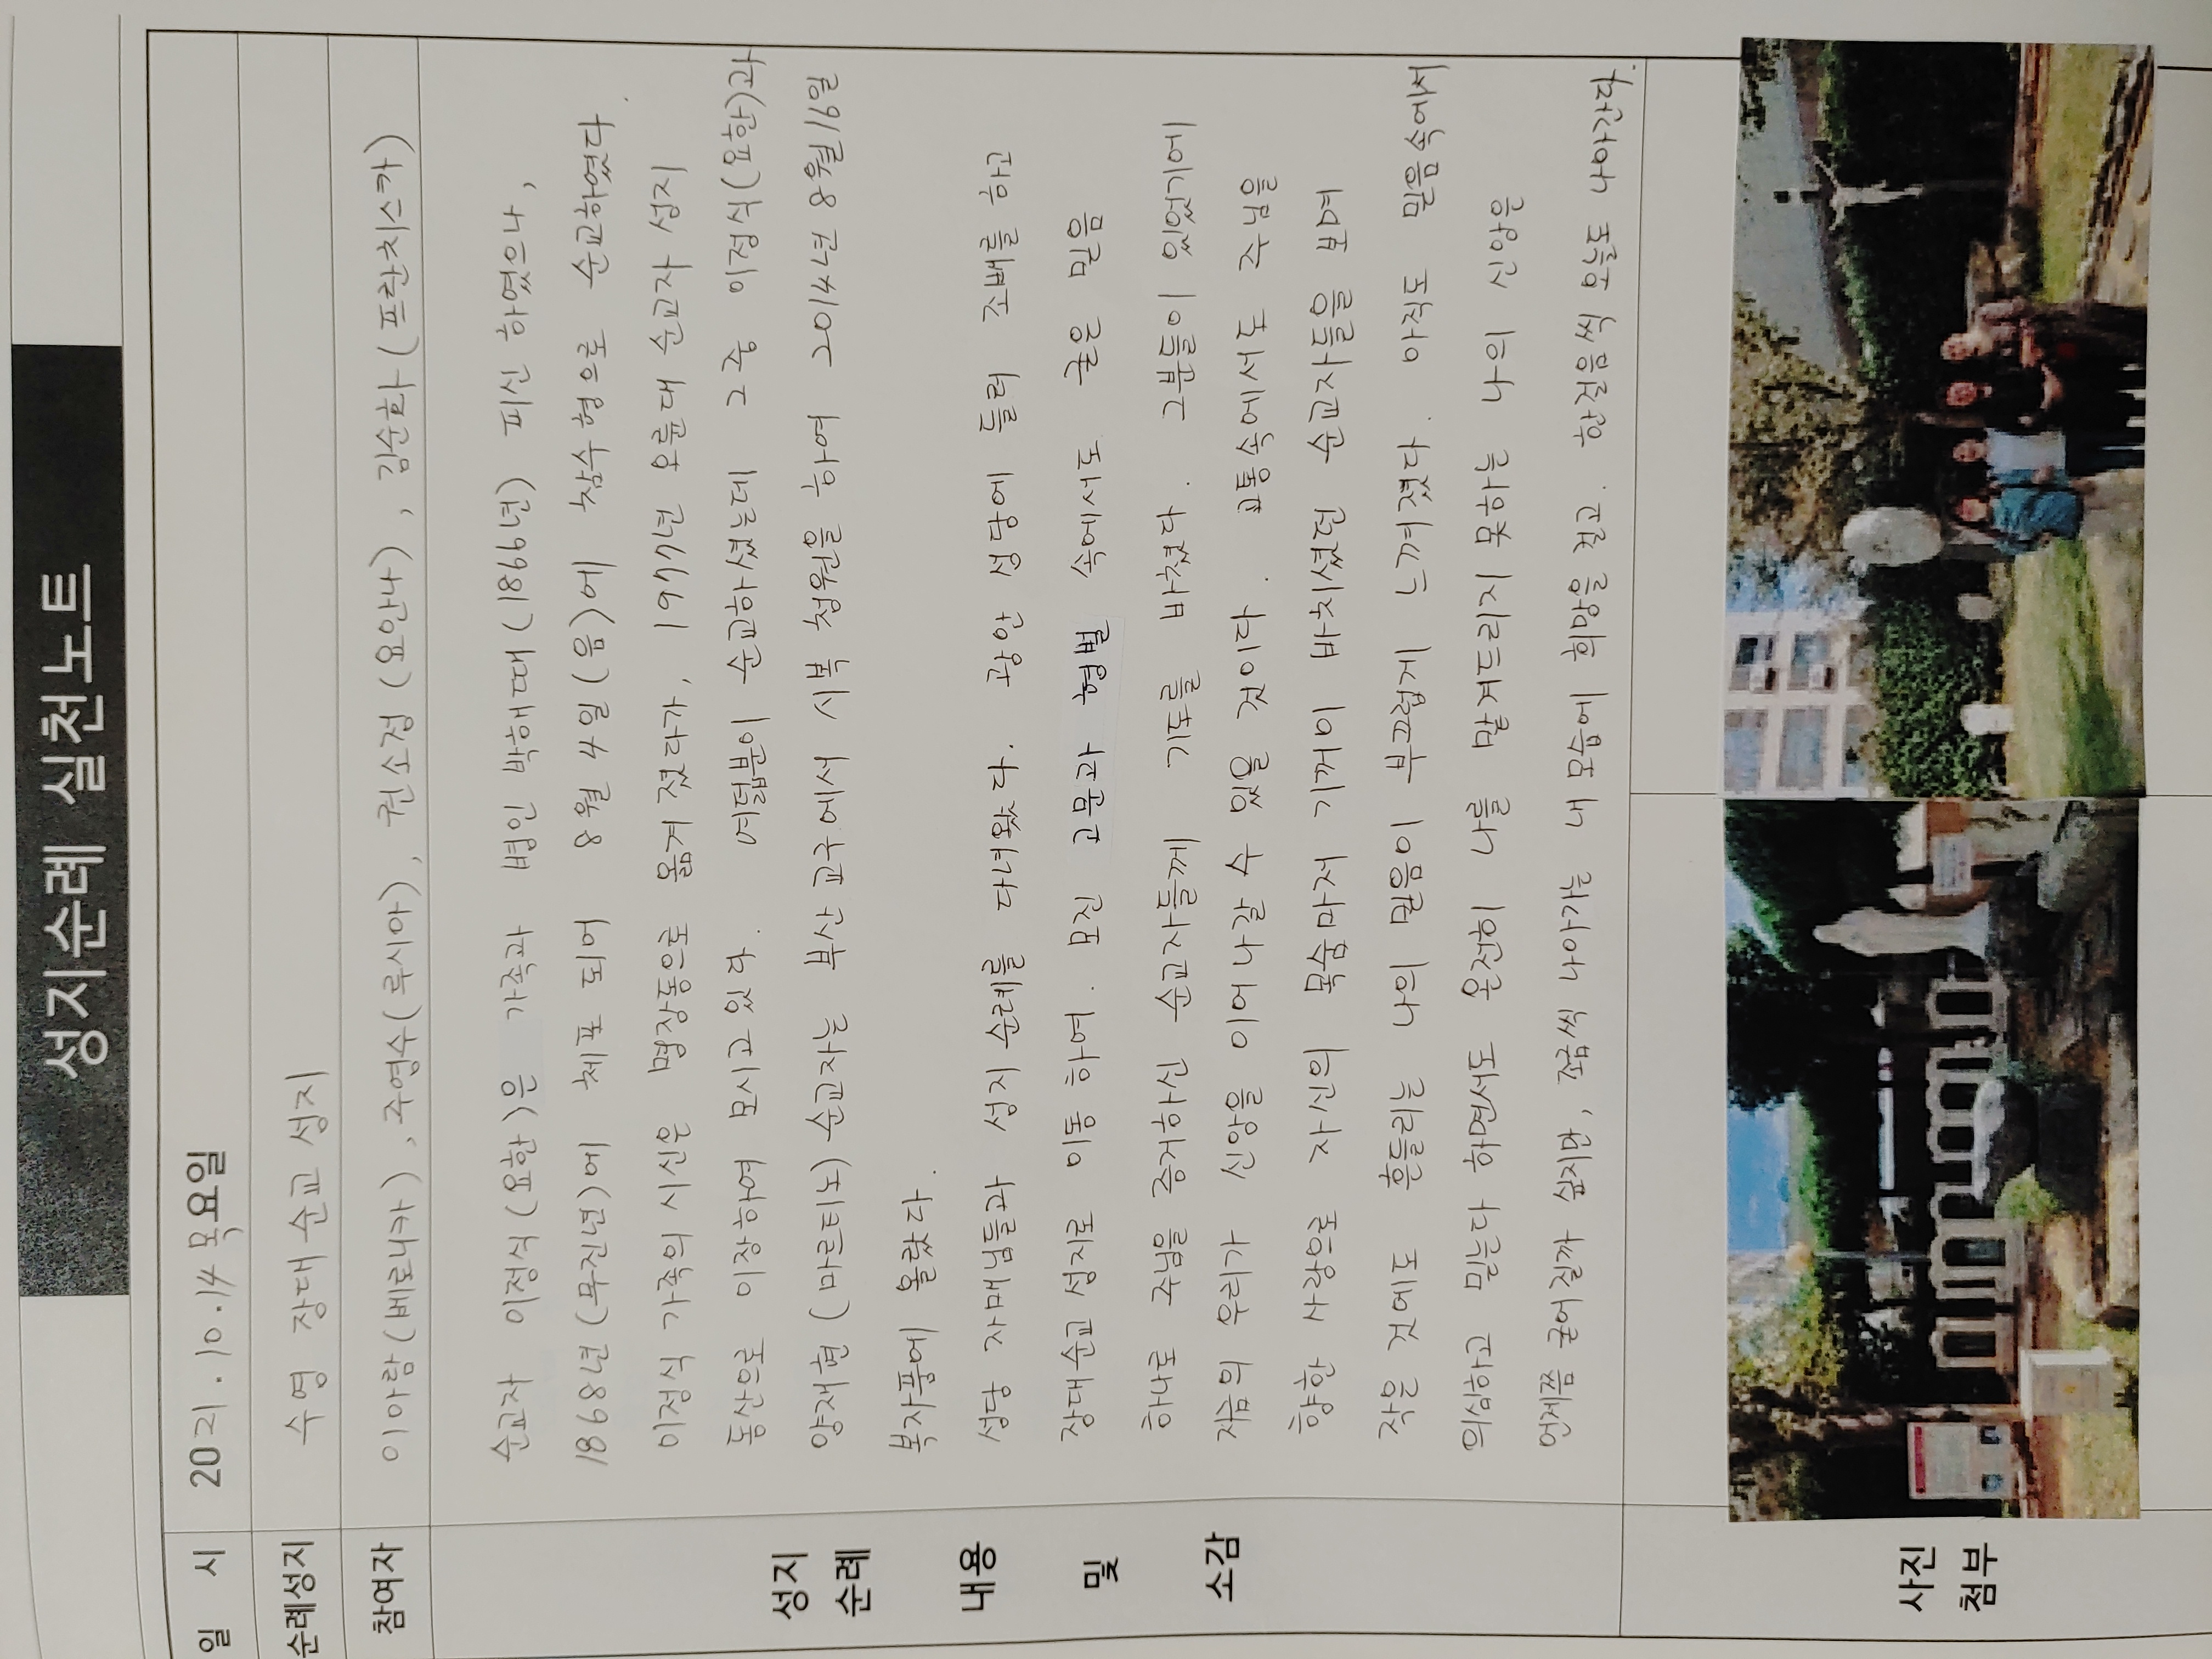 성지순례 실천노트
일 시 2021.10.14 목요일
순례성지 수영 장대순교 성지
참여자 이아람(베로니카), 주영수(루시아), 권소점(요안나), 김순화(프란치스카)
성지 순례 내용 및 소감
순교자 이정식(요한)은 가족과 병인 박해때(1866년) 피신 하였으나,
1868년(무진년)에 체포 되어 8월 4일(음)에 참수형으로 순교하였다.
이정식 가족의 시신은 명장동으로 옮겨 졌다가, 1977년 오륜대 순교자 성지
동산으로 이장하여 모시고 있다. 여덟분이 순교하셨는데 그 중 이정식(요한)과
양재현(마르티노) 순교자는 부산 교구에서 시복 청원을 하여 2014년 8월 16일
복자품에 올랐다.
성당 자매님들과 성지 순례를 다녀왔다. 광안 성당에 들러 조배를 하고
장대순교 성지로 이동 하여. 모진 고문과 형벌 속에서도 굳은 믿음
하나로 주님을 증거하신 순교자들께 기도를 바쳤다. 그분들이 있었기에
지금의 우리가 신앙을 이어나갈 수 있을 것이다. 고통속에서도 주님을
향한 사랑으로 자신의 목숨마저 기꺼이 바치셨던 순교자들을 보며
작은 것에도 흔들리는 나의 믿음이 부끄럽게 느껴졌다. 아직도 믿음속에서
의심하고 믿는다 하면서도 온전히 나를 맡겨드리지 못하는 나의 신앙은
언제쯤 굳어질까 싶지만, 조금씩 나아가는 내 모습에 희망을 걸고. 한걸음씩 오늘도 나아간다.
사진 첨부